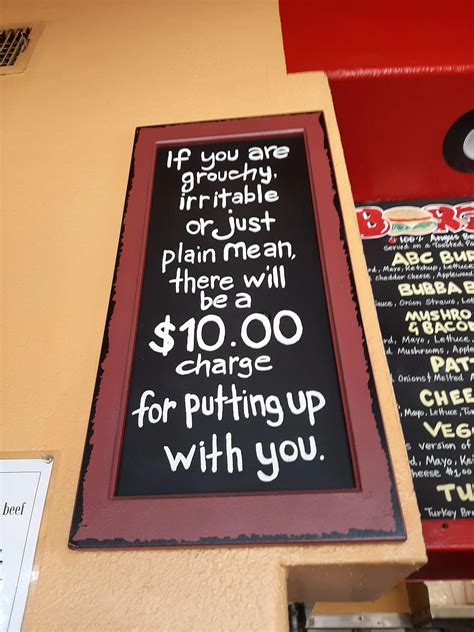 If you are
grouchy,
irritable
or just
plain mean,
there will
be a
$10.00
charge
for putting up
with you.
beef
100% Angus Be
served on a Toasted
ABC BUR
Mayo, Ketchup, Lettuce
cheddar cheese, Applewood
BUBBA B
Onion Straws,
MUSHRO
& BACO
Mayo, Lettuce
Mushrooms, Apple
PAT
Onions & Melted
CHEE
Mayo, Lettuce,
VEG
version of
Mayo,
cheese $1.00
TU
Turkey Bre